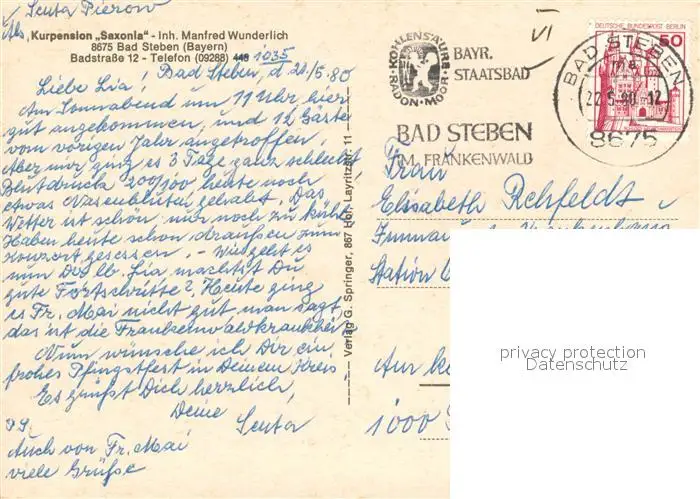 Senta Pierow
Kurpension „Saxonia" - Inh. Manfred Wunderlich
8675 Bad Steben (Bayern)
Badstraße 12 - Telefon (09288) 448 1035
Bad Steben, d. 21/5.80
Liebe Lia!
Am Sonnabend um 11 Uhr hier
gut angekommen, und 12 Gäste
vom vorigen Jahr angetroffen.
Aber mir ging es 3 Tage ganz schlecht
Blutdruck 200/100 heute noch
etwas Nasenbluten gehabt. Das
Wetter ist schön nur noch zu kühl
Haben heute schon draußen zum
Konzert gesessen. - Wie geht es
nun Dir lb. Lia, machtst Du
gute Fortschritte? Heute ging
es Fr. Mai nicht gut, man sagt
das ist die Frankenwaldkrankheit
Nun wünsche ich Dir ein
frohes Pfingstfest in Deinem Kreis
Es grüßt Dich herzlich,
Deine
Senta
Auch von Fr. Mai
viele Grüße
Verlag G. Springer, 867 Hof, Layritzstr. 11
VI
KOHLENSÄURE
RADON·MOOR
BAYR.
STAATSBAD
BAD STEBEN
IM FRANKENWALD
DEUTSCHE BUNDESPOST BERLIN
50
BAD STEBEN
22.5.80.-12
8675
Frau
Elisabeth Rehfeldt
Station
1000
privacy protection
Datenschutz